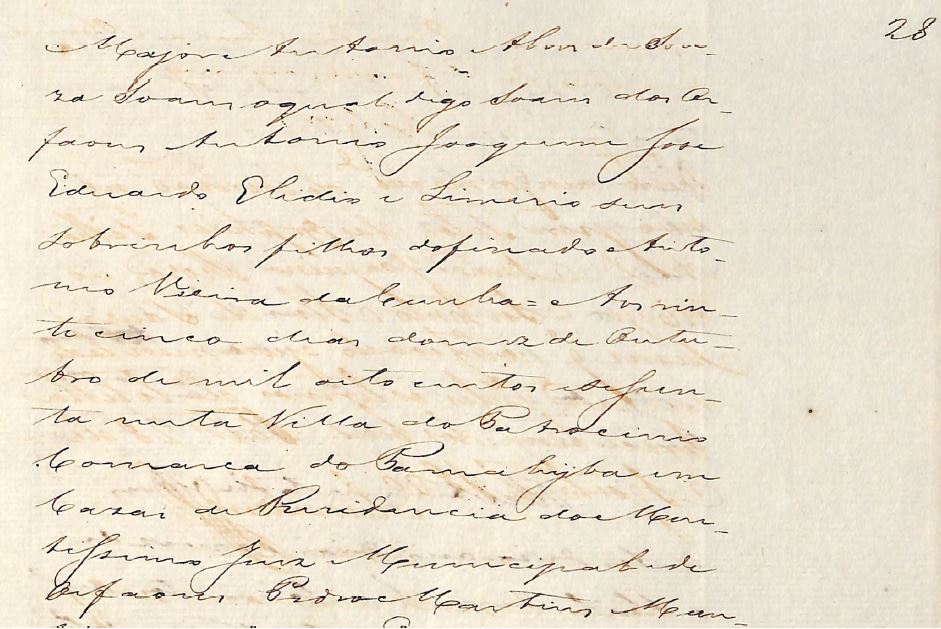 28
Major Antonio Alves de Sou-
za Soares o qual digo Soares dos Or-
faons Antonio Joaquim Jose
Eduardo Elidio e Limirio seus
sobrinhos filhos do finado Anto-
nio Vieira da Cunha = Aos vin-
te cinco dias do mez de Outu-
bro de mil oito centos e sessen-
ta nesta Villa do Patrocinio
Comarca do Parnahyba em
Cazas de Rezidencia do Meri-
tissimo Juiz Municipal e de
Orfaons Pedro Martins